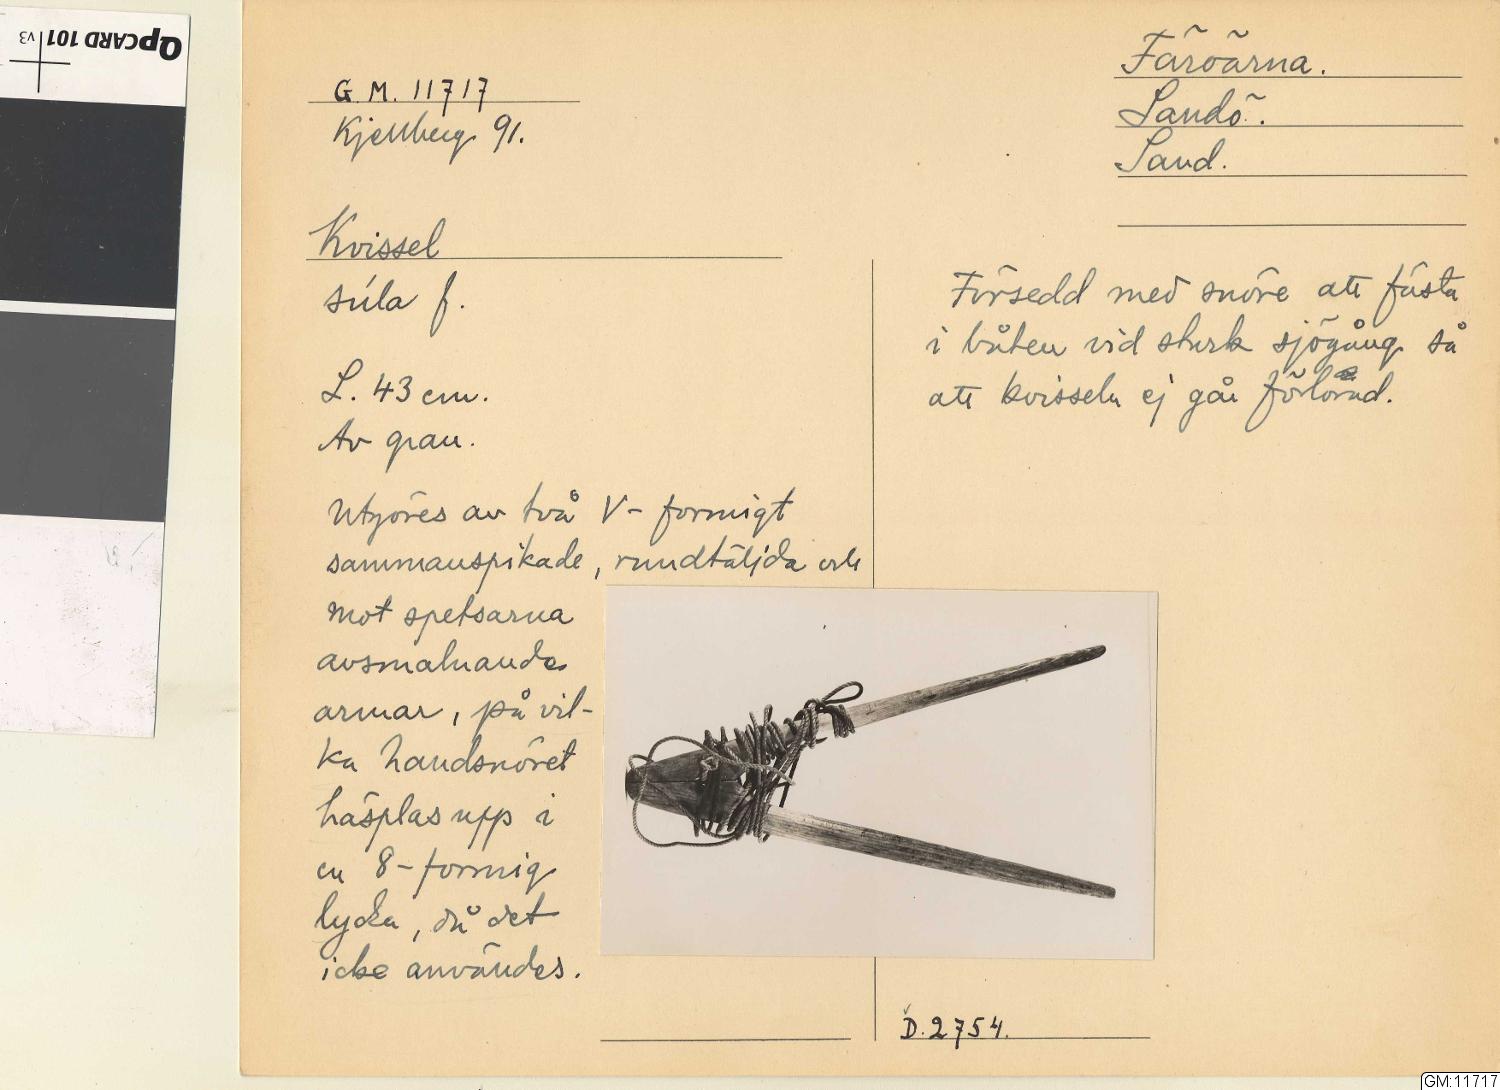 QPCARD 101 v3
G. M. 11717
Kjellberg 91.
Färöarna.
Sandö.
Sand.
Kvissel
súla f.
L. 43 cm.
Av gran.
Utgöres av två V-formigt
sammanspikade, rundtäljda och
mot spetsarna
avsmalnande
armar, på vil-
ka handsnöret
häsplas upp i
en 8-formig
lycka, då det
icke användes.
Försedd med snöre att fästa
i båten vid stark sjögång så
att kvisseln ej går förlorad.
D. 2754.
GM:11717